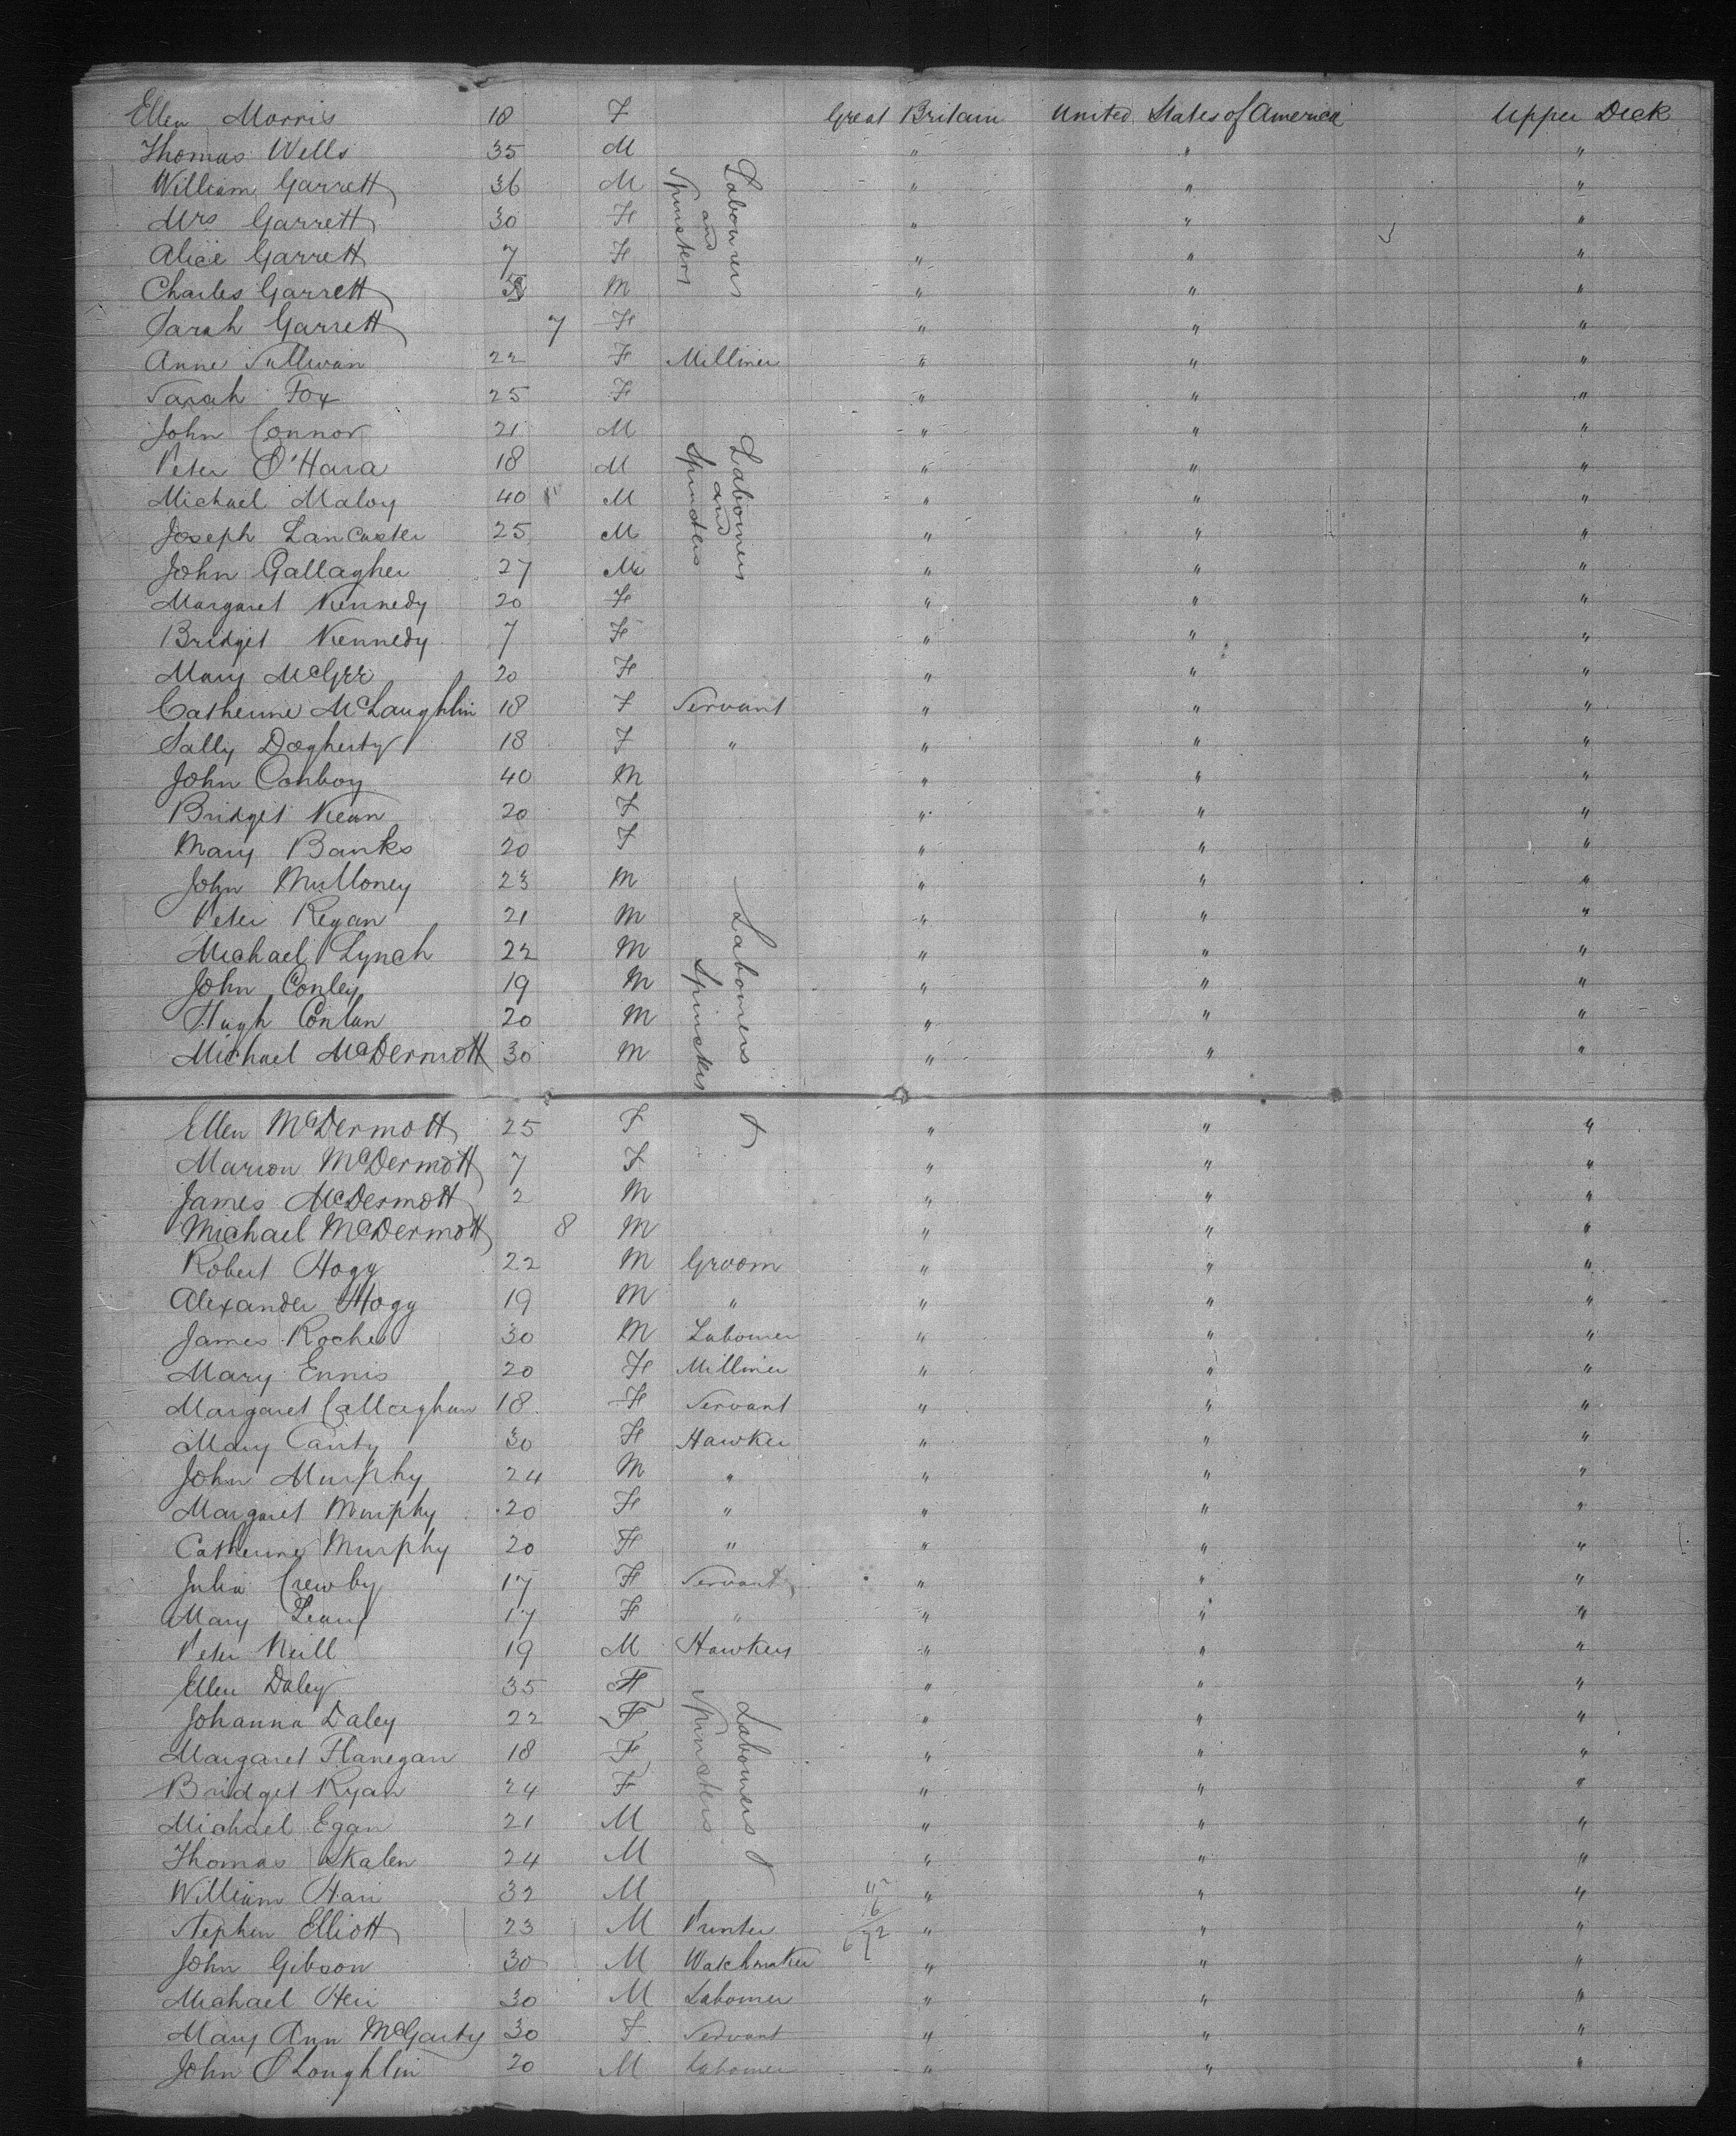 Ellen Morris 18 F Great Britain United States of America Upper Deck
Thomas Wells 35 M " " "
William Garrett 36 M " " "
Mrs Garrett 30 F " " "
Labourers and Spinsters
Alice Garrett 7 F " " "
Charles Garrett M " " "
Sarah Garrett 7 F " " "
Anne Sullivan 22 F Milliner " " "
Sarah Fox 25 F " " "
John Connor 21 M " " "
Peter O'Hara 18 M " " "
Michael Maloy 40 M " " "
Labourers and Spinsters
Joseph Lancaster 25 M " " "
John Gallagher 27 M " " "
Margaret Kennedy 20 F " " "
Bridget Kennedy 7 F " " "
Mary McGee 20 F " " "
Catherine McLaughlin 18 F Servant " " "
Sally Dogherty 18 F " " " "
John Conboy 40 M " " "
Bridget Kean 20 F " " "
Mary Banks 20 F " " "
John Mulloney 23 M " " "
Peter Regan 21 M " " "
Michael Lynch 22 M " " "
Labourers Spinsters
John Conley 19 M " " "
Hugh Conlan 20 M " " "
Michael McDermott 30 M " " "
Ellen McDermott 25 F " " "
Marion McDermott 7 F " " "
James McDermott 2 M " " "
Michael McDermott 8 M " " "
Robert Hogg 22 M Groom " " "
Alexander Hogg 19 M " " " "
James Roche 30 M Labourer " " "
Mary Ennis 20 F Milliner " " "
Margaret Callaghan 18 F Servant " " "
Mary Canty 30 F Hawker " " "
John Murphy 24 M " " " "
Margaret Murphy 20 F " " " "
Catherine Murphy 20 F " " " "
Julia Crewby 17 F Servant " " "
Mary Leary 17 F " " " "
Peter Neill 19 M Hawkers " " "
Ellen Daley 35 F " " "
Johanna Daley 22 F " " "
Margaret Flanegan 18 F " " "
Labourers Spinsters
Bridget Ryan 24 F " " "
Michael Egan 21 M " " "
Thomas Skalen 24 M " " "
William Hari 32 M " " "
Stephen Elliott 23 M Printer " " "
John Gibson 30 M Watchmaker " " "
Michael Heir 30 M Labourer " " "
Mary Ann McGarty 30 F Servant " " "
John O'Loughlin 20 M Labourer " " "